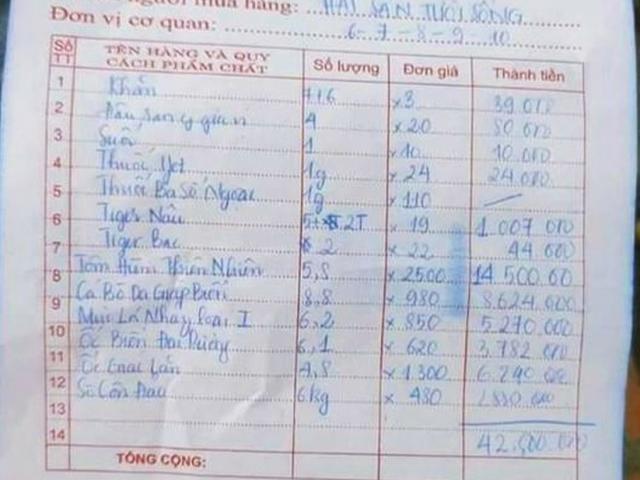 người mua hàng: HẢI SẢN TƯƠI SỐNG
Đơn vị cơ quan: 6-7-8-9-10
Số TT TÊN HÀNG VÀ QUY CÁCH PHẨM CHẤT Số lượng Đơn giá Thành tiền
1 Khăn ×3 39.000
2 Đậu 4 ×20 80.000
3 Suối 1 ×10 10.000
4 Thuốc 1g ×24 24.000
5 Thuốc Ba Số Ngoại 1g ×110
6 Tiger Nâu 2T ×19 1.007 000
7 Tiger Bạc 2 ×22 44.000
8 Tôm Hùm Thiên Nhiên 5,8 ×2500 14.500.00
9 Cá Bò Da Giáp Biển 8,8 ×980 8.624.000
Mực Lá Nháy Loại I 6,2 ×850 5.270.000
10 Ốc Biển 6,1 ×620 3.782 000
11 Ốc 4,8 ×1300 6.240 000
12 Sò 6kg ×480 2880.000
13
14 42.500.000
TỔNG CỘNG: